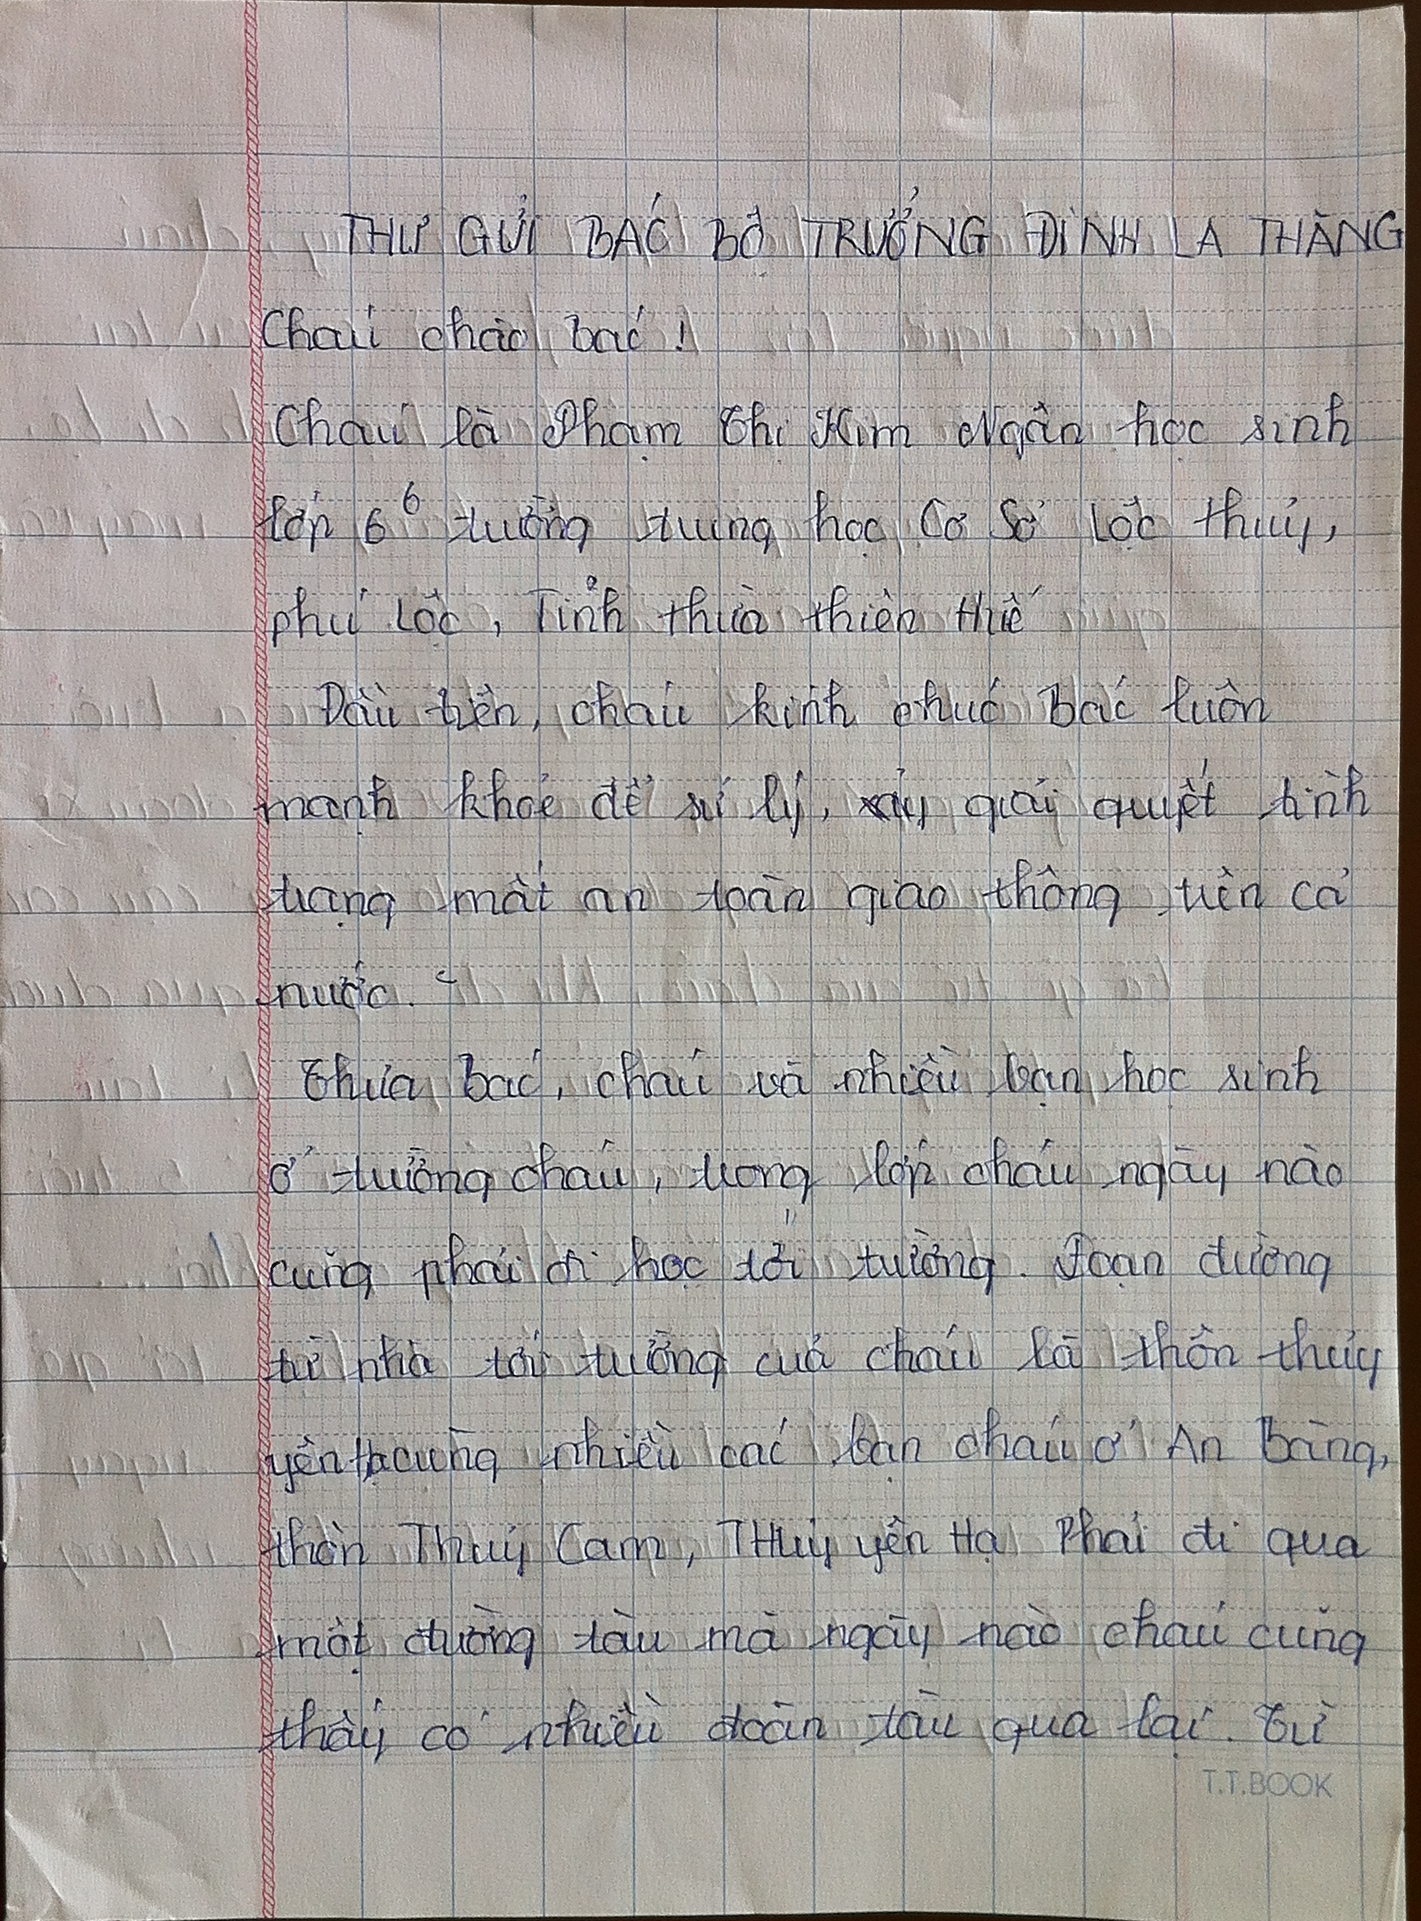 THƯ GỬI BÁC BỘ TRƯỞNG ĐINH LA THĂNG
Cháu chào bác!
Cháu là Phạm Thị Kim Ngân học sinh
lớp 6⁶ trường trung học Cơ Sở Lộc thuỷ,
phú Lộc, Tỉnh thừa thiên Huế
Đầu tiên, cháu kính chúc Bác luôn
mạnh khoẻ để xử lý, giải quyết tình
trạng mất an toàn giao thông trên cả
nước.
Thưa bác, cháu và nhiều bạn học sinh
ở trường cháu, trong lớp cháu ngày nào
cũng phải đi học tới trường. Đoạn đường
từ nhà tới trường của cháu là thôn thuỷ
yên hạ cùng nhiều các bạn cháu ở An Bàng,
thôn Thuỷ Cam, THuỷ yên Hạ Phải đi qua
một đường tàu mà ngày nào cháu cũng
thấy có nhiều đoàn tàu qua lại. Từ
T.T.BOOK